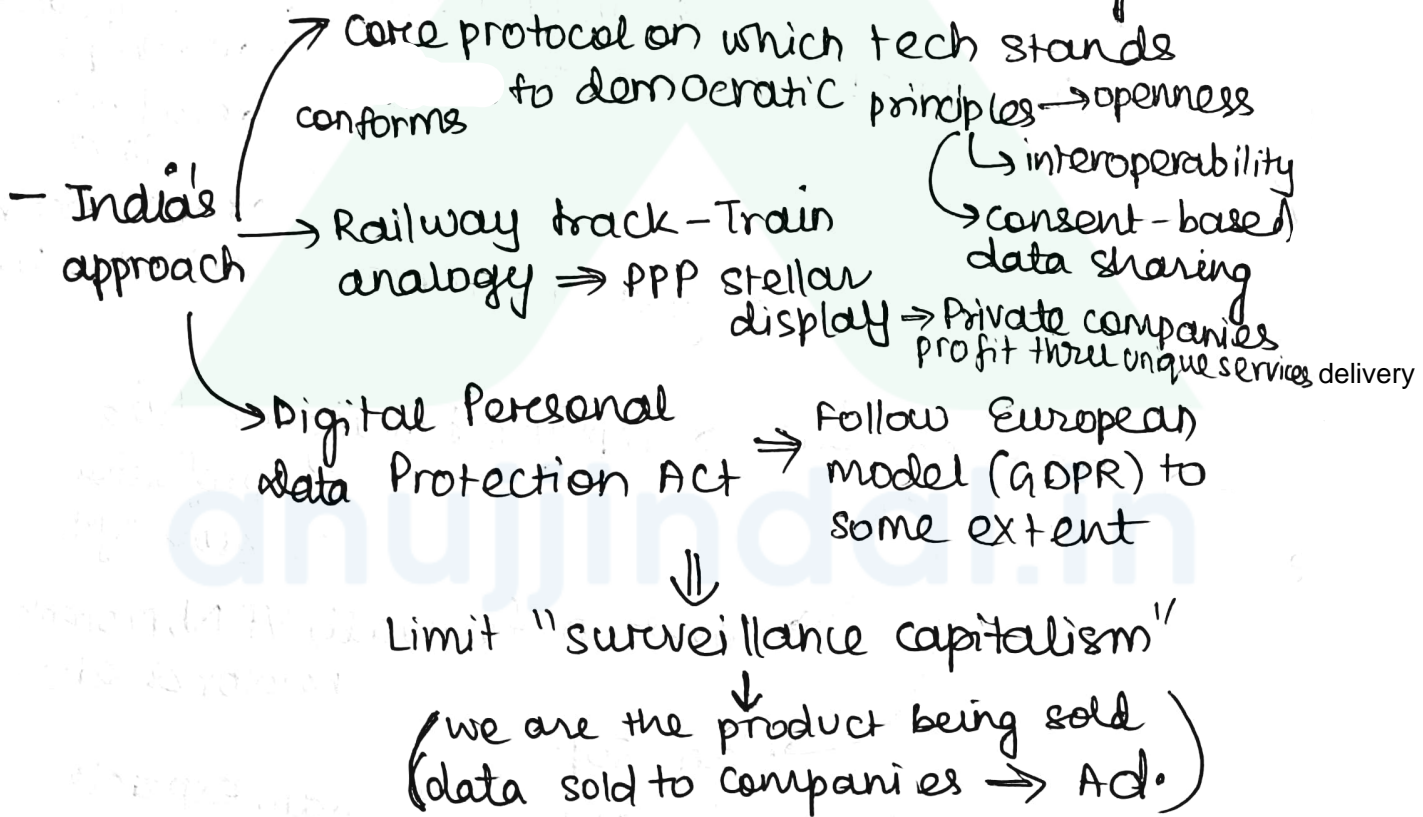 Core protocol on which tech stands
conforms to democratic principles → openness
↳ interoperability
→ consent-based
data sharing
- India's
approach
→ Railway track-Train
analogy ⇒ PPP stellar
display ⇒ Private companies
profit thru unique services delivery
→ Digital Personal
data Protection Act
⇒ Follow European
model (GDPR) to
some extent
⇓
Limit "surveillance capitalism"
↓
(we are the product being sold
(data sold to companies → Ad.)
anujjindal.in